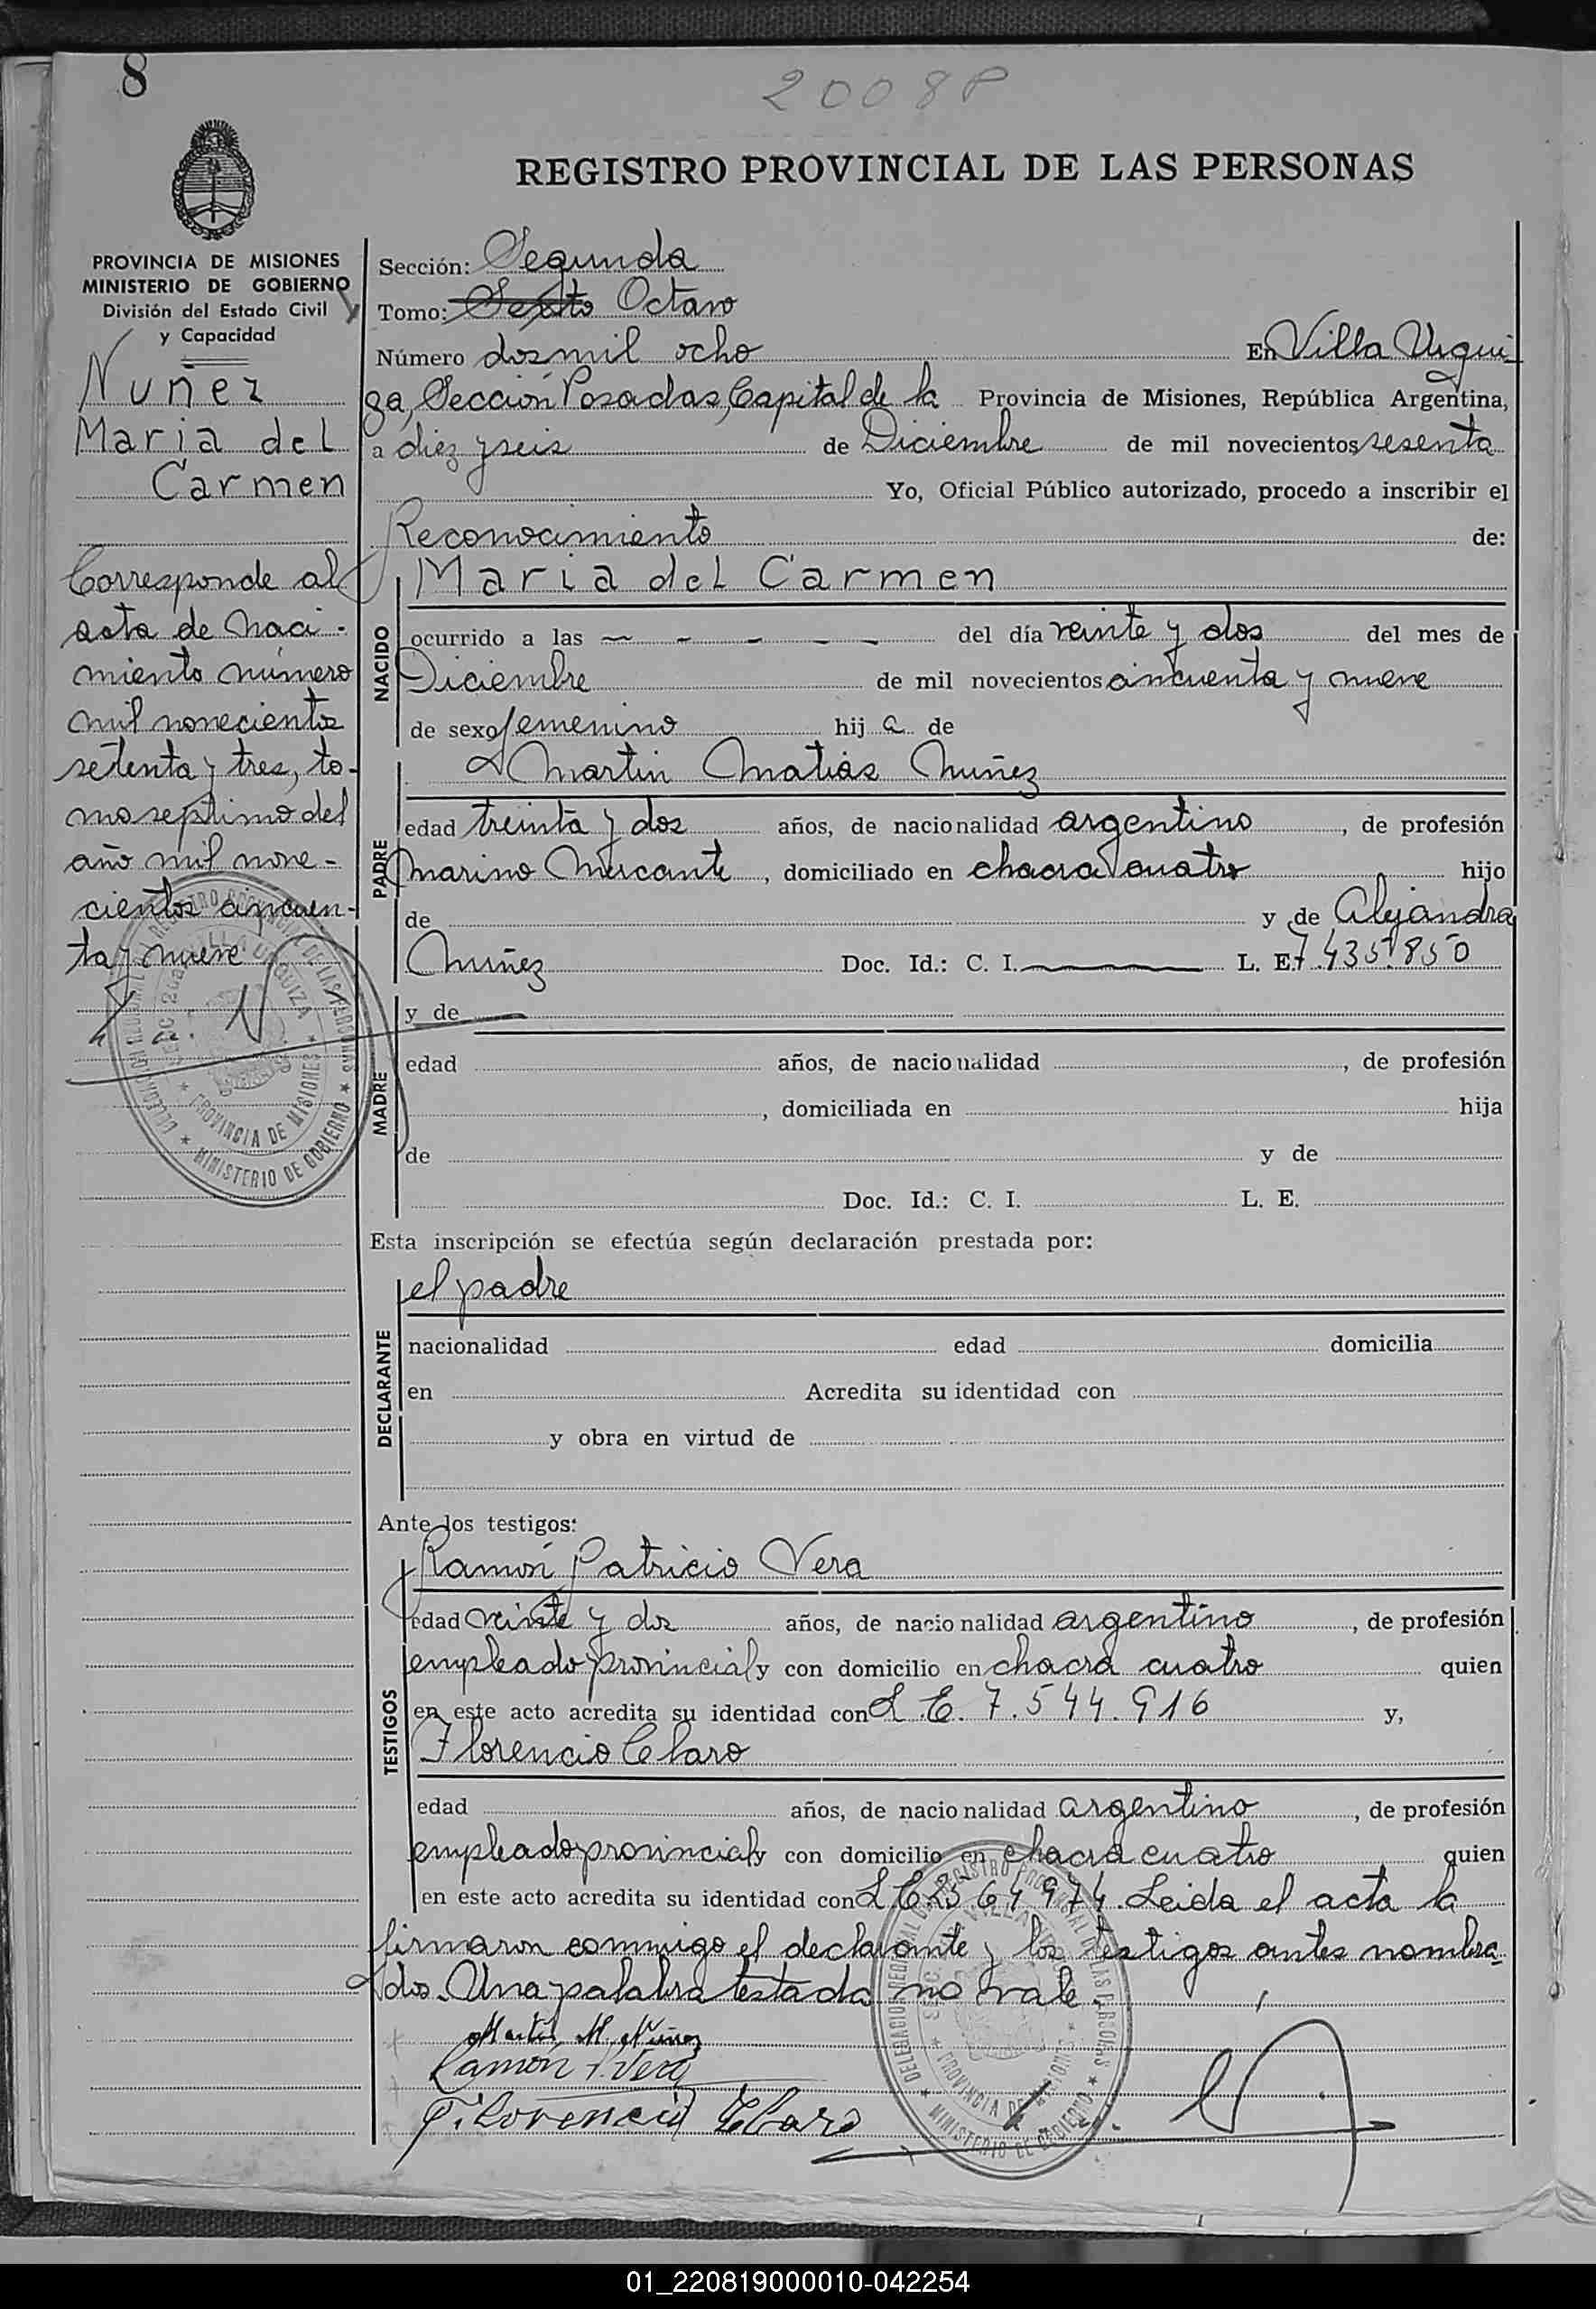 8
2008P
REGISTRO PROVINCIAL DE LAS PERSONAS
PROVINCIA DE MISIONES
MINISTERIO DE GOBIERNO
División del Estado Civil
y Capacidad
Nuñez
Maria del
Carmen
Corresponde al
acta de naci-
miento número
mil novecientos
setenta y tres, to-
mo septimo del
año mil nove-
cientos cincuen-
ta y nueve
Sección: Segunda
Tomo: Sexto Octavo
Número dos mil ocho En Villa Urqui
za, Sección Posadas, Capital de la Provincia de Misiones, República Argentina,
a diez y seis de Diciembre de mil novecientos sesenta
Yo, Oficial Público autorizado, procedo a inscribir el
Reconocimiento de:
Maria del Carmen
NACIDO
ocurrido a las — - - - - del día veinte y dos del mes de
Diciembre de mil novecientos cincuenta y nueve
de sexo femenino hij a de
Martin Matias Nuñez
PADRE
edad treinta y dos años, de nacionalidad argentino, de profesión
Marino Mercante, domiciliado en chacra cuatro hijo
de y de Alejandra
Nuñez Doc. Id.: C. I. — L. E. 7.435.850
y de
MADRE
edad años, de nacionalidad , de profesión
, domiciliada en hija
de y de
Doc. Id.: C. I. L. E.
Esta inscripción se efectúa según declaración prestada por:
el padre
DECLARANTE
nacionalidad edad domicilia
en Acredita su identidad con
y obra en virtud de
Ante los testigos:
Ramón Patricio Vera
TESTIGOS
edad veinte y dos años, de nacionalidad argentino, de profesión
empleado provincial y con domicilio en chacra cuatro quien
en este acto acredita su identidad con L.E. 7.544.916 y,
Florencio Claro
edad años, de nacionalidad argentino, de profesión
empleado provincial y con domicilio en chacra cuatro quien
en este acto acredita su identidad con L.E. Leida el acta la
firmaron conmigo el declarante y los testigos antes nombra-
dos. Una palabra testada no vale.
Martín M. Nuñez
Ramón P. Vera
Florencio Claro
DELEGACION REGIONAL DEL REGISTRO PROVINCIAL DE LAS PERSONAS
VILLA URQUIZA
PROVINCIA DE MISIONES
MINISTERIO DE GOBIERNO
01_220819000010-042254